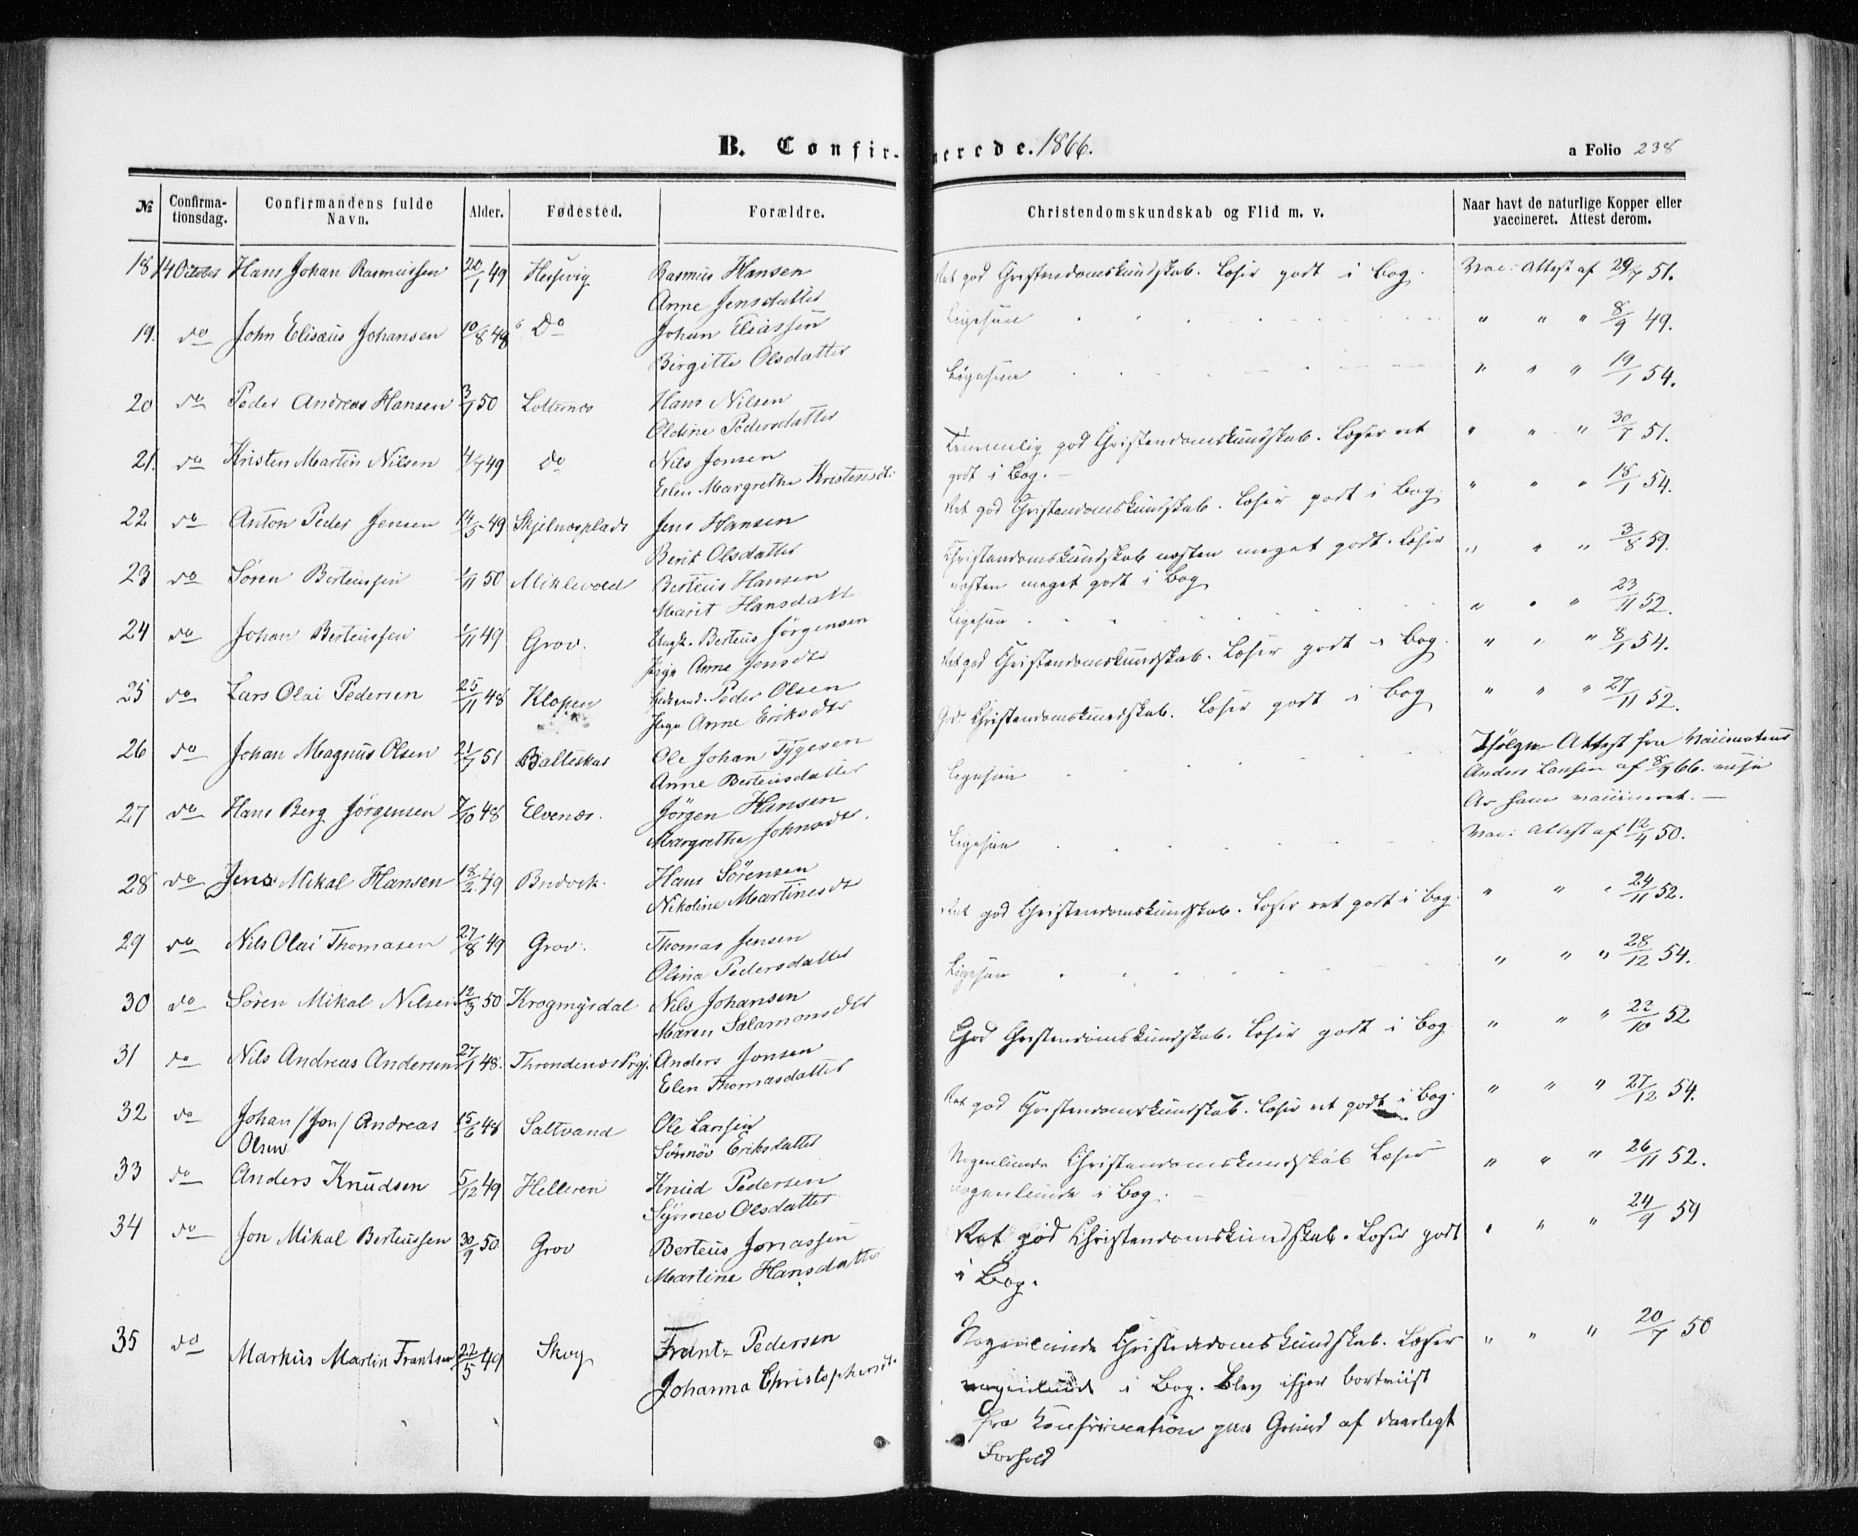 B. Confir- merede. 1866.
a Folio 238
№ Confirma-tionsdag. Confirmandens fulde Navn. Alder. Fødested. Forældre. Christendomskundskab og Flid m. v. Naar havt de naturlige Kopper eller vaccineret. Attest derom.
18 14 October Hans Johan Rasmussen 20/1 49 Hessvig Rasmus Hansen Ret god Christendomskundskab. Læser godt i Bog. Vac: Attest af 29/7 51.
Anne Jensdatter
19. do John Elisæus Johansen 10/8 48 Do Johan Eliassen Ligesaa " " " 8/9 49.
Birgitte Olsdatter
20 do Peder Andreas Hansen 3/1 50 Hans Nilsen Ligesaa " " " 19/1 54.
Oldine Pedersdatter
21. do Kristen Martin Nilsen 4/7 49 Do Nils Jonsen Temmelig god Christendomskundskab. Læser ret " " " 30/7 51.
Elen Margrethe Kristensdt: godt i Bog.
22 do Anton Peder Jensen 14/5 49 Skjelnesplads Jens Hansen Ret god Christendomskundskab. Læser godt i Bog. " " " 18/1 54.
Berit Olsdatter
23 do Søren Berteussen 1/11 50 Miklevold Berteus Hansen Christendomskundskab næsten meget godt. Læser " " " 3/8 59.
Marit Hansdatt næsten meget godt i Bog
24 do Johan Berteussen 1/11 49 Grov. Berteus Jørgensen Ligesaa " " " 23/11 52.
Pige Anne Jensdtr
25 do Lars Olai Pedersen 25/11 48 Klopen Peder Olsen Ret god Christendomskundskab. Læser godt i Bog. " " " 8/1 54.
Pige Anne Eriksdtr
26 do Johan Magnus Olsen 21/7 51 Balteskar Ole Johan Tygesen God Christendomskundskab. Læser godt i Bog " " " 27/11 52.
Anne Berteusdatter
27 do Hans Berg Jørgensen 7/10 48 Elvenes. Jørgen Hansen Ligesaa Ifølge Attest fra Vaccinateur
Margrethe Johnsdtr. Anders Larsen af 8/9 66.
vaccineret.
28 do Jens Mikal Hansen 18/2 49 Budvik. Hans Sørensen Ligesaa Vac: Attest af 12/4 50.
Nikoline Martinesdt
29 do Nils Olai Thomasen 27/8 49 Grov. Thomas Jensen Ret god Christendomskundskab. Læser ret godt i Bog. " " " 24/11 52.
Olina Pedersdatter
30 do Søren Mikal Nilsen 12/3 50 Krogmyrdal Nils Johansen Ligesaa " " " 28/12 54.
Maren Salamonsdtr
31 do Nils Andreas Andersen 27/1 48. Throndenes Prgj. Anders Jonsen God Christendomskundskab. Læser godt i Bog. " " " 22/10 52
Elen Thomasdatter
32 do Johan /Jon/ Andreas 15/6 48 Saltvand Ole Larssen Ret god Christendomskundskab. Læser ret godt i Bog. " " " 27/12 54.
Olsen Sønnöv Eriksdatter
33 do Anders Knudsen 5/12 49 Helleren Knud Pedersen Nogenlunde Christendomskundskab Læser " " " 26/11 52.
Synnev Olsdatter nogenlunde i Bog.
34 do Jon Mikal Berteussen 30/9 50 Grov Berteus Jonassen Ret god Christendomskundskab. Læser godt " " " 24/9 59
Martine Hansdatter i Bog.
35 do Markus Martin Frantsen 22/5 49 Skog Frantz Pedersen Nogenlunde Christendomskundskab. Læser " " " 20/7 50
Johanna Christophersdtr nogenlunde i Bog. Blev ifjor bortviist
fra Konfirmation paa Grund af daarligt
Forhold